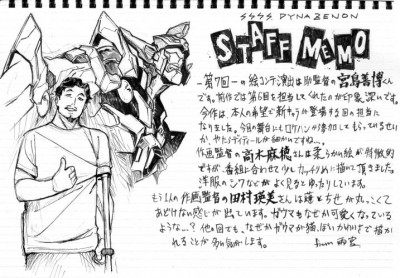 SSSS.DYNAZENON
STAFF MEMO
-第7回-の絵コンテ演出は助監督の宮島善博くん
です。前作では第6回を担当してくれたのが印象深いです。
今作は、本人の希望で新キャラが登場する回の担当に
なりました。今回の舞台にもロケハンが参加してもらっているせい
か、やたらディティールが細かいですね…。
作画監督の髙木麻穂さんは柔らかい絵が特徴的
ですが、番組に合わせて少しカッチリめに描いて頂きました。
洋服のシワなどがよく見るとゆったりしています。
もう1人の作画監督の田村瑛美さんは蓬とちせが丸っこくて
あどけない感じが出ています。ガウマもなぜか可愛くなっている
ような…？他の回でも、なぜかガウマが猫っぽいかわいさで描か
れることが多い気がします。
from 雨宮